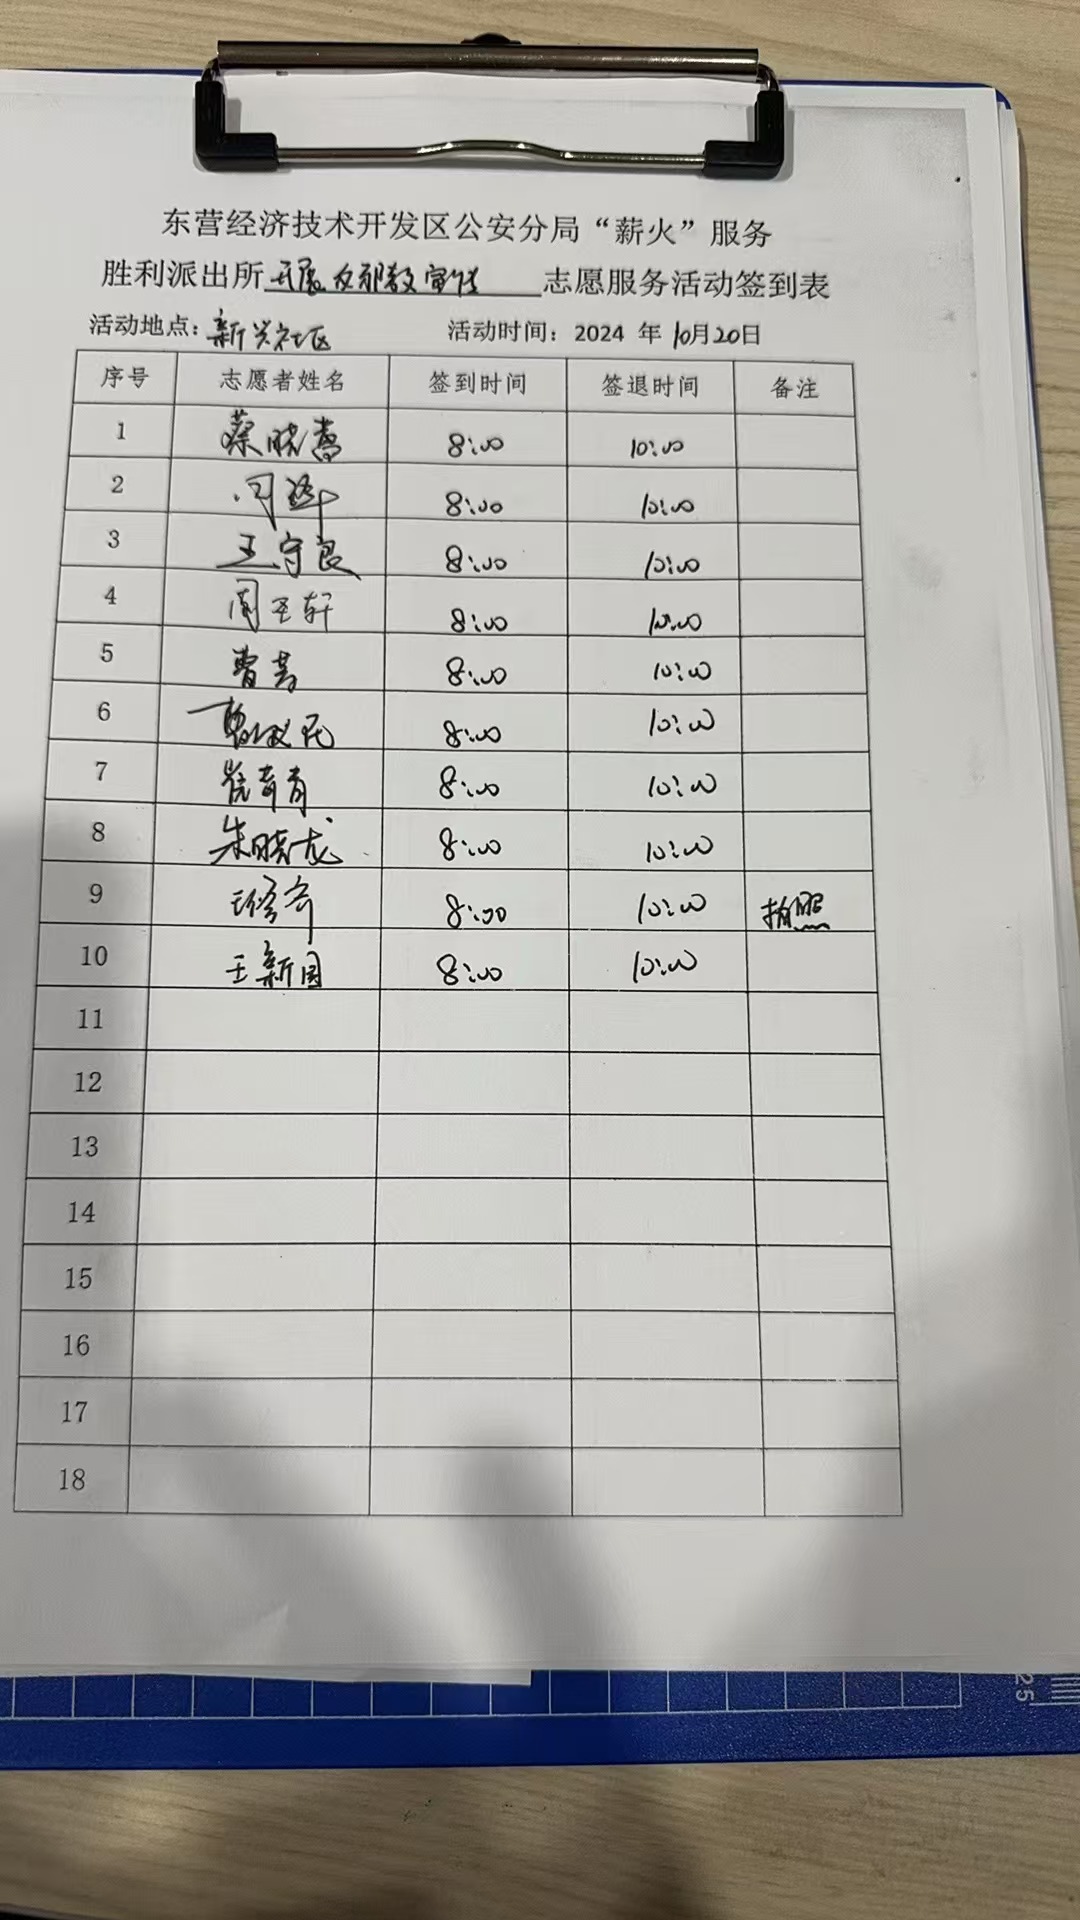 东营经济技术开发区公安分局“薪火”服务
胜利派出所开展反邪教宣传志愿服务活动签到表
活动地点：新兴社区 活动时间：2024 年10月20日
序号 志愿者姓名 签到时间 签退时间 备注
1 蔡晓 8:00 10:00
2 8:00 10:00
3 王守良 8:00 10:00
4 8:00 10:00
5 曹芳 8:00 10:00
6 8:00 10:00
7 8:00 10:00
8 朱晓龙 8:00 10:00
9 8:00 10:00 拍照
10 王新国 8:00 10:00
11
12
13
14
15
16
17
18
25